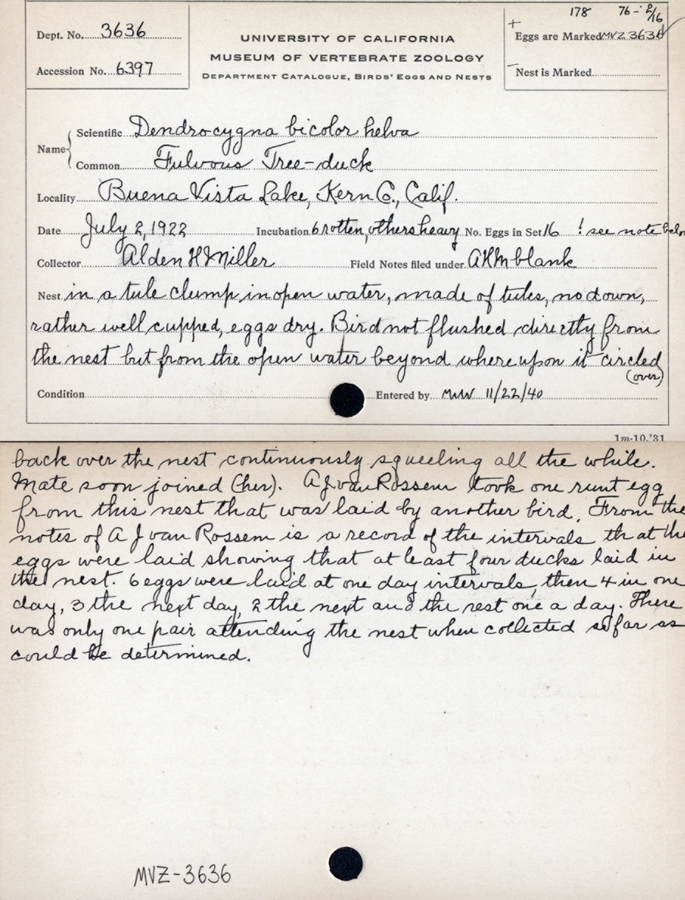 178 76-2/16
Dept. No. 3636
UNIVERSITY OF CALIFORNIA
+ Eggs are Marked MVZ 3636
MUSEUM OF VERTEBRATE ZOOLOGY
Accession No. 6397
DEPARTMENT CATALOGUE, BIRDS' EGGS AND NESTS
- Nest is Marked
Name { Scientific Dendrocygna bicolor helva
Common Fulvous Tree-duck
Locality Buena Vista Lake, Kern Co., Calif.
Date July 2, 1922 Incubation 6 rotten, others heavy No. Eggs in Set 16 ! see note below
Collector Alden H Miller Field Notes filed under AHM blank
Nest in a tule clump, in open water, made of tules, no down,
rather well cupped, eggs dry. Bird not flushed directly from
the nest but from the open water beyond where upon it circled
(over)
Condition Entered by MWW 11/22/40
1m-10,'31
back over the nest continuously squeeling all the while.
Mate soon joined (her). A J. van Rossem took one runt egg
from this nest that was laid by another bird. From the
notes of A J van Rossem is a record of the intervals th at the
eggs were laid showing that at least four ducks laid in
the nest. 6 eggs were laid at one day intervals, then 4 in one
day, 3 the next day, 2 the next and the rest one a day. There
was only one pair attending the nest when collected so far as
could be determined.
MVZ-3636